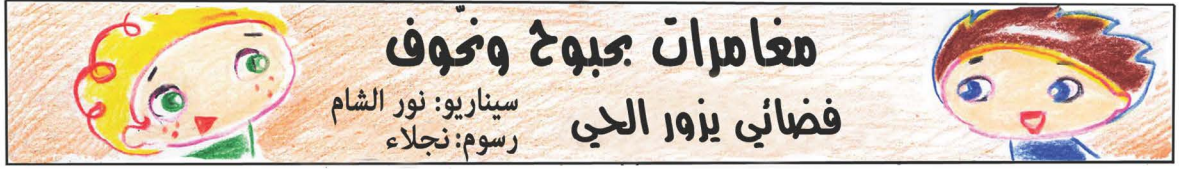 مغامرات بحبوح ونحّوف
فضائي يزور الحي
سيناريو: نور الشام
رسوم: نجلاء